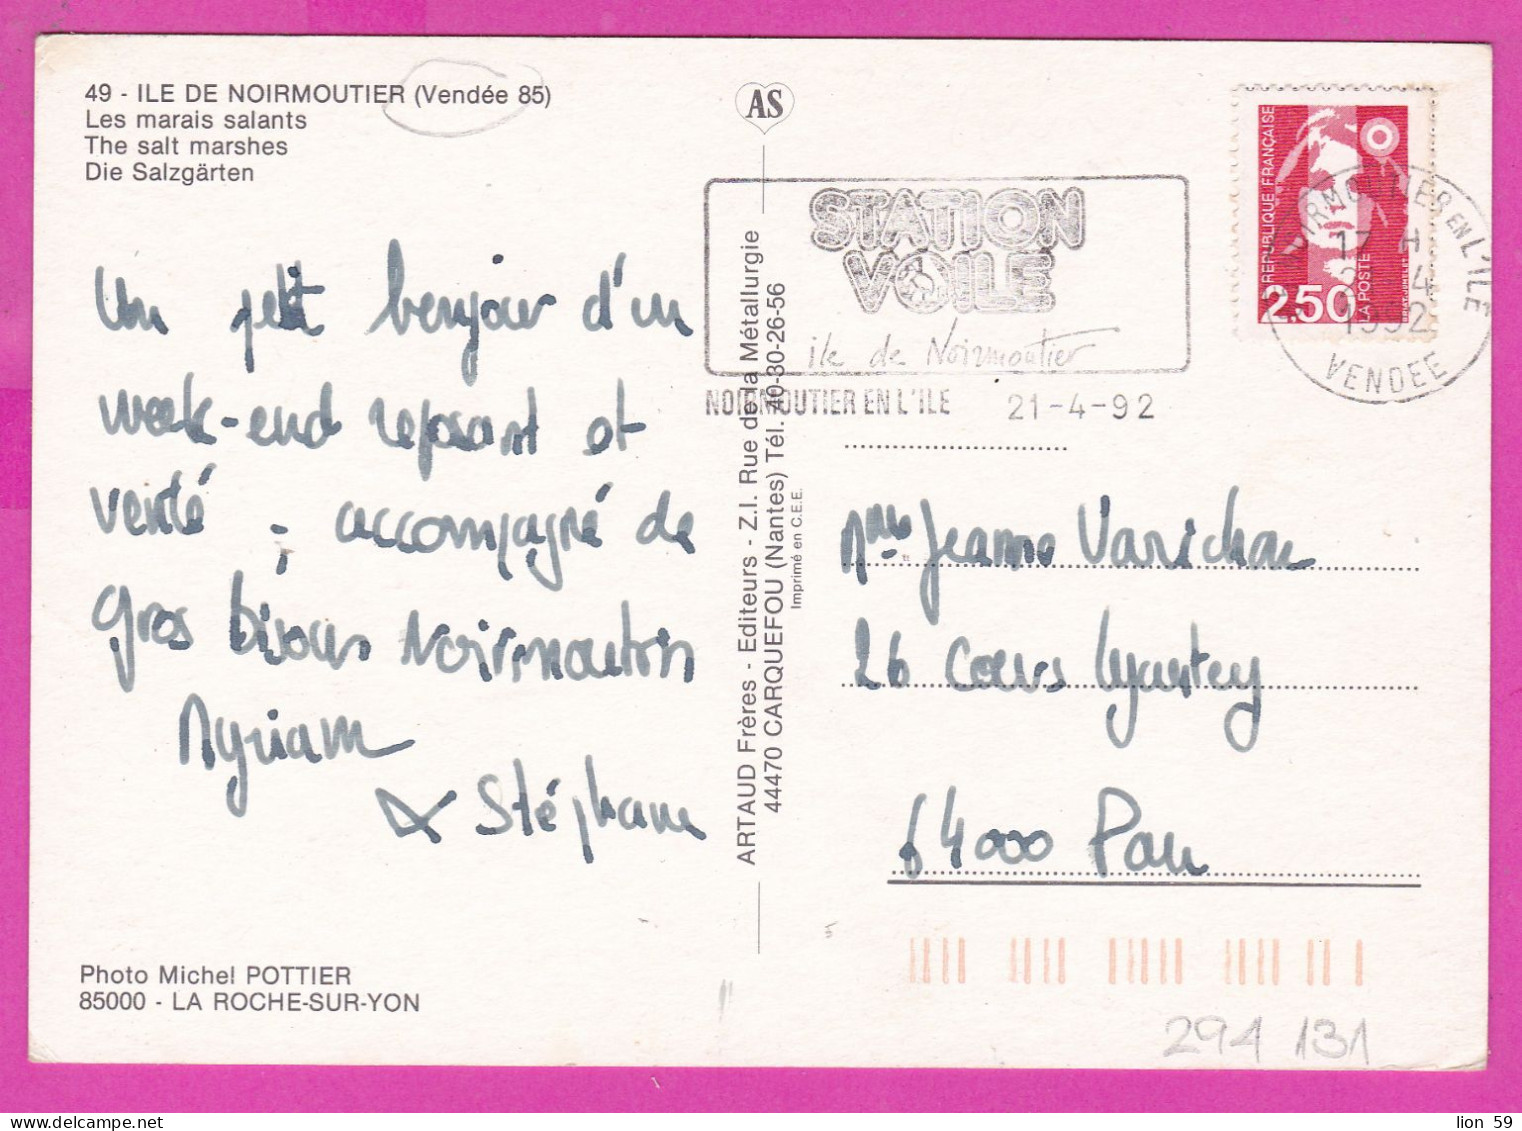 49 - ILE DE NOIRMOUTIER (Vendée 85)
Les marais salants
The salt marshes
Die Salzgärten
AS
Un petit bonjour d'un
week-end reposant et
venté - accompagné de
gros bisous Noirmoutrins
Myriam
& Stéphane
Photo Michel POTTIER
85000 - LA ROCHE-SUR-YON
ARTAUD Frères - Editeurs - Z.I. Rue de la Métallurgie
44470 CARQUEFOU (Nantes) Tél. 40-30-26-56
Imprimé en C.E.E.
STATION
VOILE
ile de Noirmoutier
NOIRMOUTIER EN L'ILE 21-4-92
REPUBLIQUE FRANÇAISE
2,50
LA POSTE
NOIRMOUTIER EN L'ILE
17 H
4
1992
VENDEE
Mme Jeanne
26 Cours Lyautey
64000 Pau
294 131
lion 59